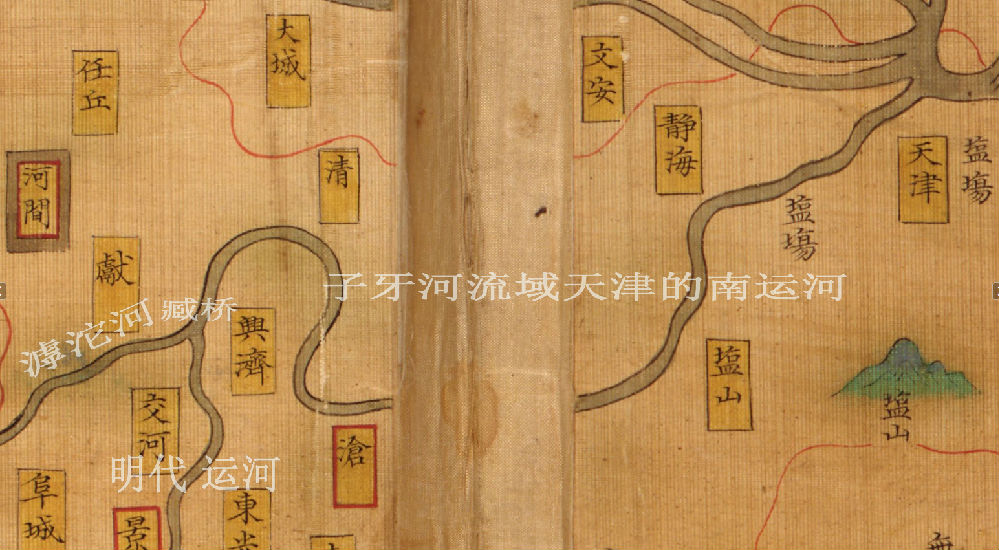 大城
任丘
河間
清
獻
滹沱河 臧桥
興濟
交河
明代 运河
滄
阜城
景
東
文安
靜海
天津
塩塲
塩塲
子牙河流域天津的南运河
塩山
塩山